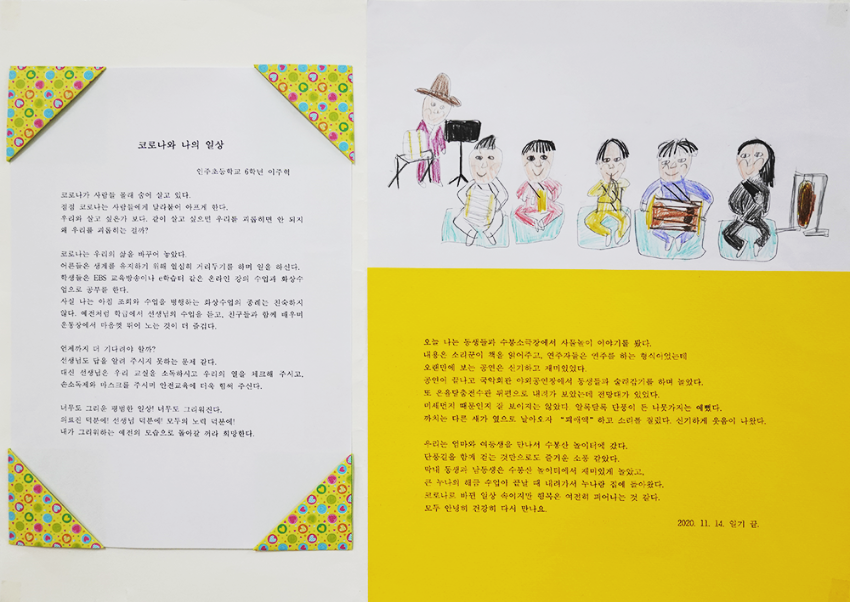 코로나와 나의 일상
인주초등학교 6학년 이주혁
코로나가 사람들 몰래 숨어 살고 있다.
점점 코로나는 사람들에게 달라붙어 아프게 한다.
우리와 살고 싶은가 보다. 같이 살고 싶으면 우리를 괴롭히면 안 되지
왜 우리를 괴롭히는 걸까?
코로나는 우리의 삶을 바꾸어 놓았다.
어른들은 생계를 유지하기 위해 열심히 거리두기를 하며 일을 하신다.
학생들은 EBS 교육방송이나 e학습터 같은 온라인 강의 수업과 화상수
업으로 공부를 한다.
사실 나는 아침 조회와 수업을 병행하는 화상수업의 굴레는 친숙하지
않다. 예전처럼 학급에서 선생님의 수업을 듣고, 친구들과 함께 배우며
운동장에서 마음껏 뛰어 노는 것이 더 즐겁다.
언제까지 더 기다려야 할까?
선생님도 답을 알려 주시지 못하는 문제 같다.
대신 선생님은 우리 교실을 소독하시고 우리의 열을 체크해 주시고,
손소독제와 마스크를 주시며 안전교육에 더욱 힘써 주신다.
너무도 그리운 평범한 일상! 너무도 그리워진다.
의료진 덕분에! 선생님 덕분에! 모두의 노력 덕분에!
내가 그리워하는 예전의 모습으로 돌아갈 거라 희망한다.
오늘 나는 동생들과 수봉소극장에서 사물놀이 이야기를 봤다.
내용은 소리꾼이 책을 읽어주고, 연주자들은 연주를 하는 형식이었는데
오랜만에 보는 공연은 신기하고 재미있었다.
공연이 끝나고 국악회관 야외공연장에서 동생들과 술래잡기를 하며 놀았다.
또 은율탈춤전수관 뒤편으로 내려가 보았는데 전망대가 있었다.
미세먼지 때문인지 잘 보이지는 않았다. 알록달록 단풍이 든 나뭇가지는 예뻤다.
까치는 다른 새가 옆으로 날아오자 “꽤애액”하고 소리를 질렀다. 신기하게 웃음이 나왔다.
우리는 엄마와 여동생을 만나서 수봉산 놀이터에 갔다.
단풍길을 함께 걷는 것만으로도 즐거운 소풍 같았다.
막내 동생과 남동생은 수봉산 놀이터에서 재미있게 놀았고,
큰 누나의 해금 수업이 끝날 때 내려가서 누나랑 집에 돌아왔다.
코로나로 바뀐 일상 속이지만 행복은 여전히 피어나는 것 같다.
모두 안녕히 건강히 다시 만나요.
2020. 11. 14. 일기 끝.